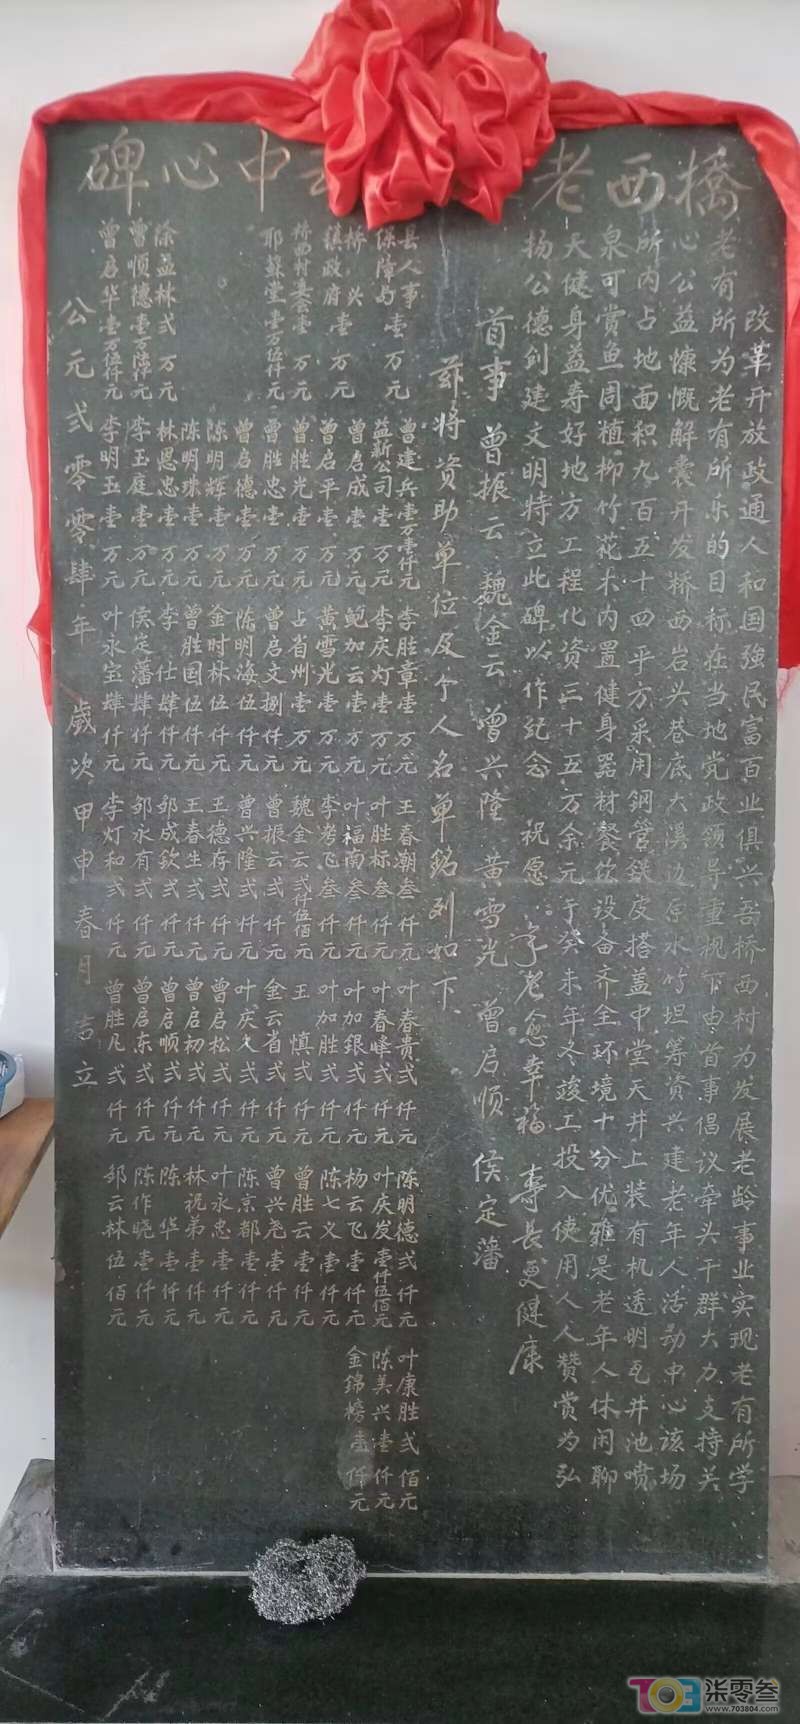 橋西老
中心碑
改革开放政通人和国強民富百业俱兴吾桥西村为发展老龄事业实现老有所学
老有所为老有所乐的目标在当地党政领导重视下由首事倡议牵头干群大力支持关
心公益慷慨解囊开发桥西岩头巷底大溪边原水竹坦筹资兴建老年人活动中心该场
所内占地面积九百五十四平方采用鋼管鉄皮搭盖中堂天井上装有机透明瓦井池喷
泉可赏鱼周植柳竹花木内置健身器材餐饮设备齐全环境十分优雅是老年人休闲聊
天健身益寿好地方工程化资三十五万余元于癸未年冬竣工投入使用人人赞赏为弘
扬公德创建文明特立此碑以作纪念 祝愿 老愈幸福 寿长更健康
首事 曾振云 魏金云 曾兴隆 黄雪光 曾启顺 侯定藩
兹将资助单位及个人名单銘列如下
县人事 曾建兵壹万壹仟元 李胜章壹万元 王春潮叁仟元 叶春贵弍仟元 陈明德弍仟元 叶康胜弍佰元
保障局壹万元 益新公司壹万元 李庆灯壹万元 叶胜标叁仟元 叶春峰弍仟元 叶庆发壹仟伍佰元 陈美兴壹仟元
桥兴 曾启成壹万元 鲍加云壹万元 叶福南叁仟元 叶加銀弍仟元 杨云飞壹仟元 金錦榜壹仟元
镇政府壹万元 曾启平壹万元 黄雪光壹万元 李考飞叁仟元 叶加胜弍仟元 陈七义壹仟元
桥西村基会壹万元 曾胜光壹万元 占省州壹万元 魏金云弍仟伍佰元 王慎弍仟元 曾胜云壹仟元
耶蘇堂壹万伍仟元 曾胜忠壹万元 曾启文捌仟元 曾振云弍仟元 金云省弍仟元 曾兴尧壹仟元
曾启德壹万元 陈明海伍仟元 曾兴隆弍仟元 叶庆久弍仟元 陈京都壹仟元
陈明辉壹万元 金时林伍仟元 王德存弍仟元 曾启松弍仟元 叶永忠壹仟元
陈明珠壹万元 曾胜国伍仟元 王春生弍仟元 曾启初弍仟元 林祝弟壹仟元
徐益林弍万元 林恩忠壹万元 李仕肆仟元 邹成欽弍仟元 曾启顺弍仟元 陈华壹仟元
曾顺德壹万陆仟元 李玉庭壹万元 侯定藩肆仟元 邹永有弍仟元 曾启东弍仟元 陈作晓壹仟元
曾启华壹万伍仟元 李明玉壹万元 叶永宝肆仟元 李灯和弍仟元 曾胜凡弍仟元 邹云林伍佰元
公元弍零零肆年 歲次甲申春月吉立
703 柒零叁
www.703804.com